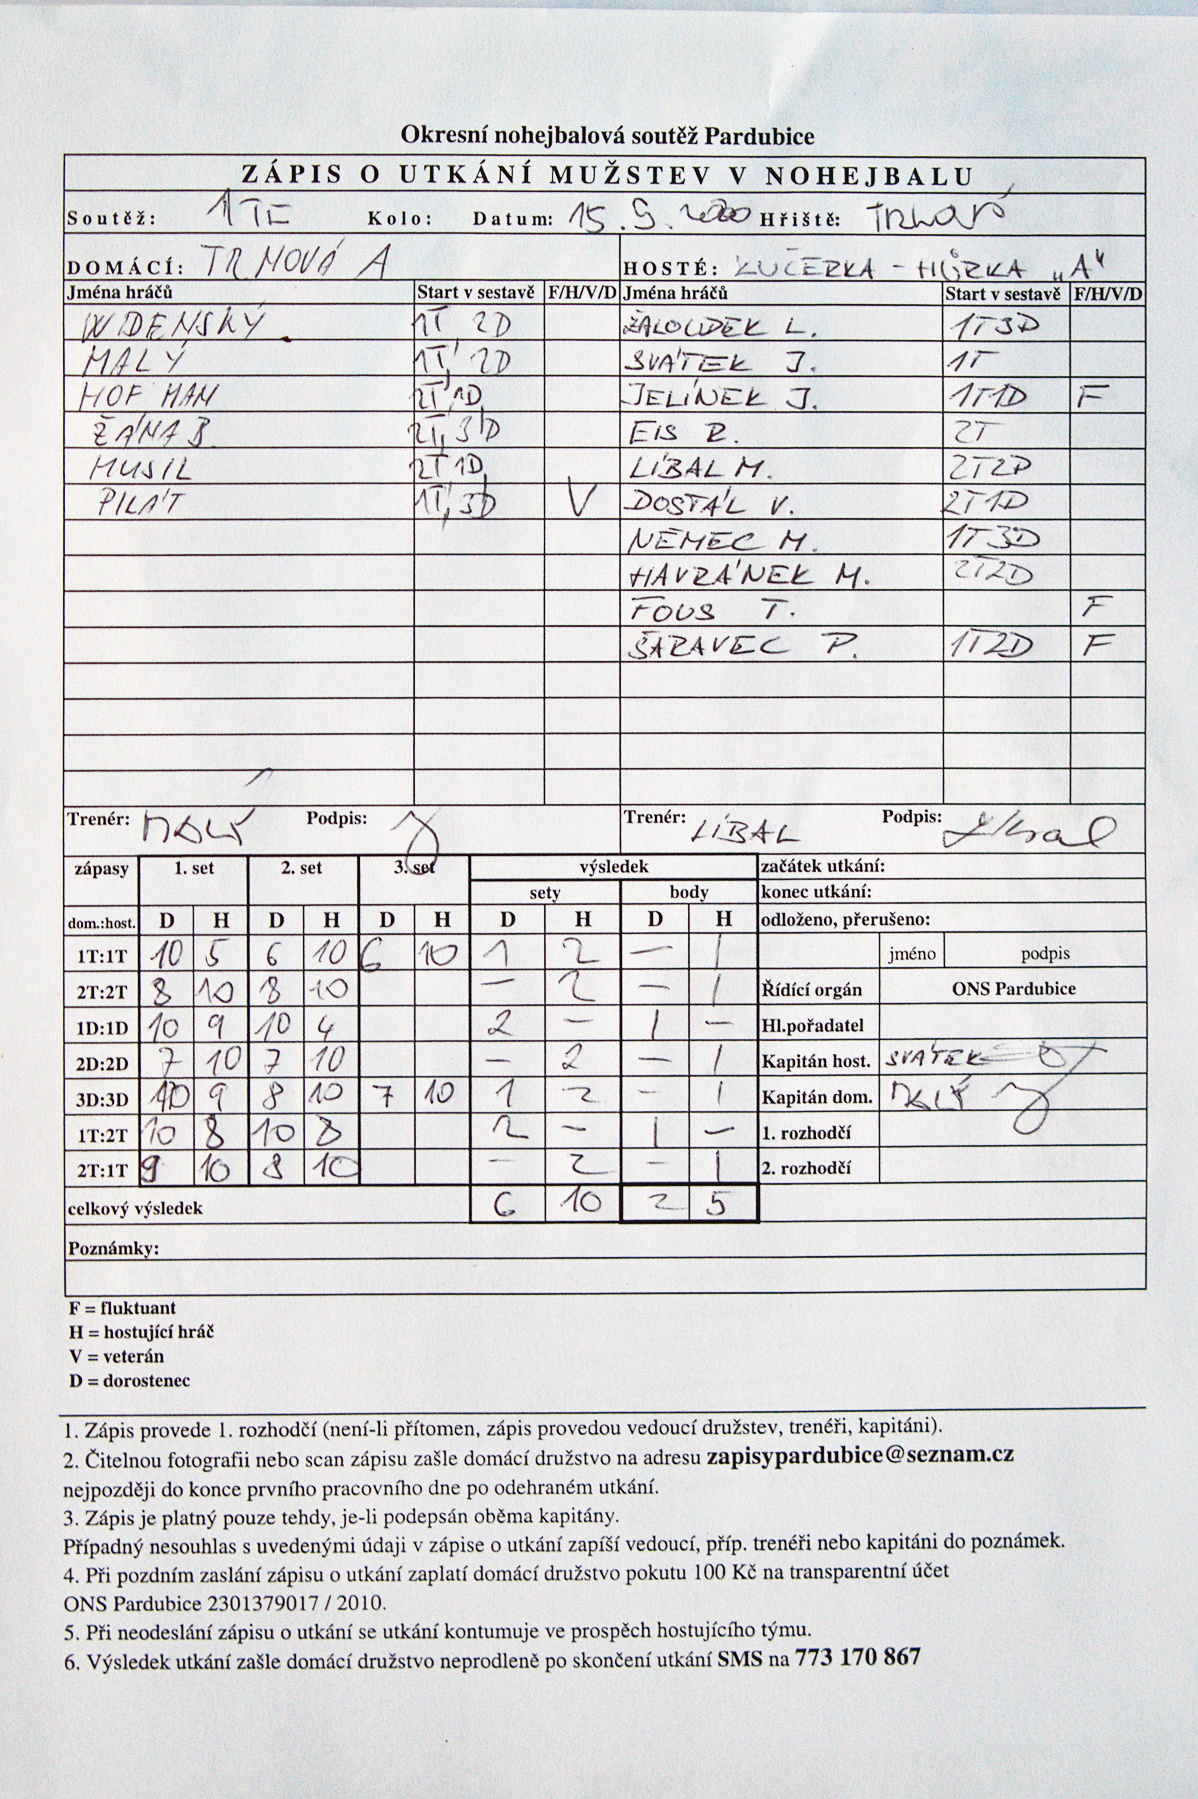 Okresní nohejbalová soutěž Pardubice
ZÁPIS O UTKÁNÍ MUŽSTEV V NOHEJBALU
Soutěž: 1TE Kolo: Datum: 15.9.2020 Hřiště:
DOMÁCÍ: TRNOVÁ A HOSTÉ: KUČERKA - HŮRKA „A"
Jména hráčů Start v sestavě F/H/V/D Jména hráčů Start v sestavě F/H/V/D
WIDENSKÝ 1T 2D ŽALOUDEK L. 1T3D
MALÝ 1T, 2D SVÁTEK J. 1T
HOFMAN 2T, 1D JELÍNEK J. 1T1D F
ŽÁNA B. 2T, 3D EIS R. 2T
MUSIL 2T 1D LÍBAL M. 2T2D
PILÁT 1T, 3D V DOSTÁL V. 2T1D
NĚMEC M. 1T3D
HAVRÁNEK M. 2T2D
FOUS T. F
ŠARAVEC P. 1T2D F
Trenér: MALÝ Podpis: Trenér: LÍBAL Podpis:
zápasy 1. set 2. set 3. set výsledek začátek utkání:
sety body konec utkání:
dom.:host. D H D H D H D H D H odloženo, přerušeno:
1T:1T 10 5 6 10 6 10 1 2 – 1 jméno podpis
2T:2T 8 10 8 10 – 2 – 1 Řídící orgán ONS Pardubice
1D:1D 10 9 10 4 2 – 1 – Hl.pořadatel
2D:2D 7 10 7 10 – 2 – 1 Kapitán host. SVÁTEK
3D:3D 10 9 8 10 7 10 1 2 – 1 Kapitán dom. MALÝ
1T:2T 10 8 10 8 2 – 1 – 1. rozhodčí
2T:1T 9 10 8 10 – 2 – 1 2. rozhodčí
celkový výsledek 6 10 2 5
Poznámky:
F = fluktuant
H = hostující hráč
V = veterán
D = dorostenec
1. Zápis provede 1. rozhodčí (není-li přítomen, zápis provedou vedoucí družstev, trenéři, kapitáni).
2. Čitelnou fotografii nebo scan zápisu zašle domácí družstvo na adresu zapisypardubice@seznam.cz
nejpozději do konce prvního pracovního dne po odehraném utkání.
3. Zápis je platný pouze tehdy, je-li podepsán oběma kapitány.
Případný nesouhlas s uvedenými údaji v zápise o utkání zapíší vedoucí, příp. trenéři nebo kapitáni do poznámek.
4. Při pozdním zaslání zápisu o utkání zaplatí domácí družstvo pokutu 100 Kč na transparentní účet
ONS Pardubice 2301379017 / 2010.
5. Při neodeslání zápisu o utkání se utkání kontumuje ve prospěch hostujícího týmu.
6. Výsledek utkání zašle domácí družstvo neprodleně po skončení utkání SMS na 773 170 867